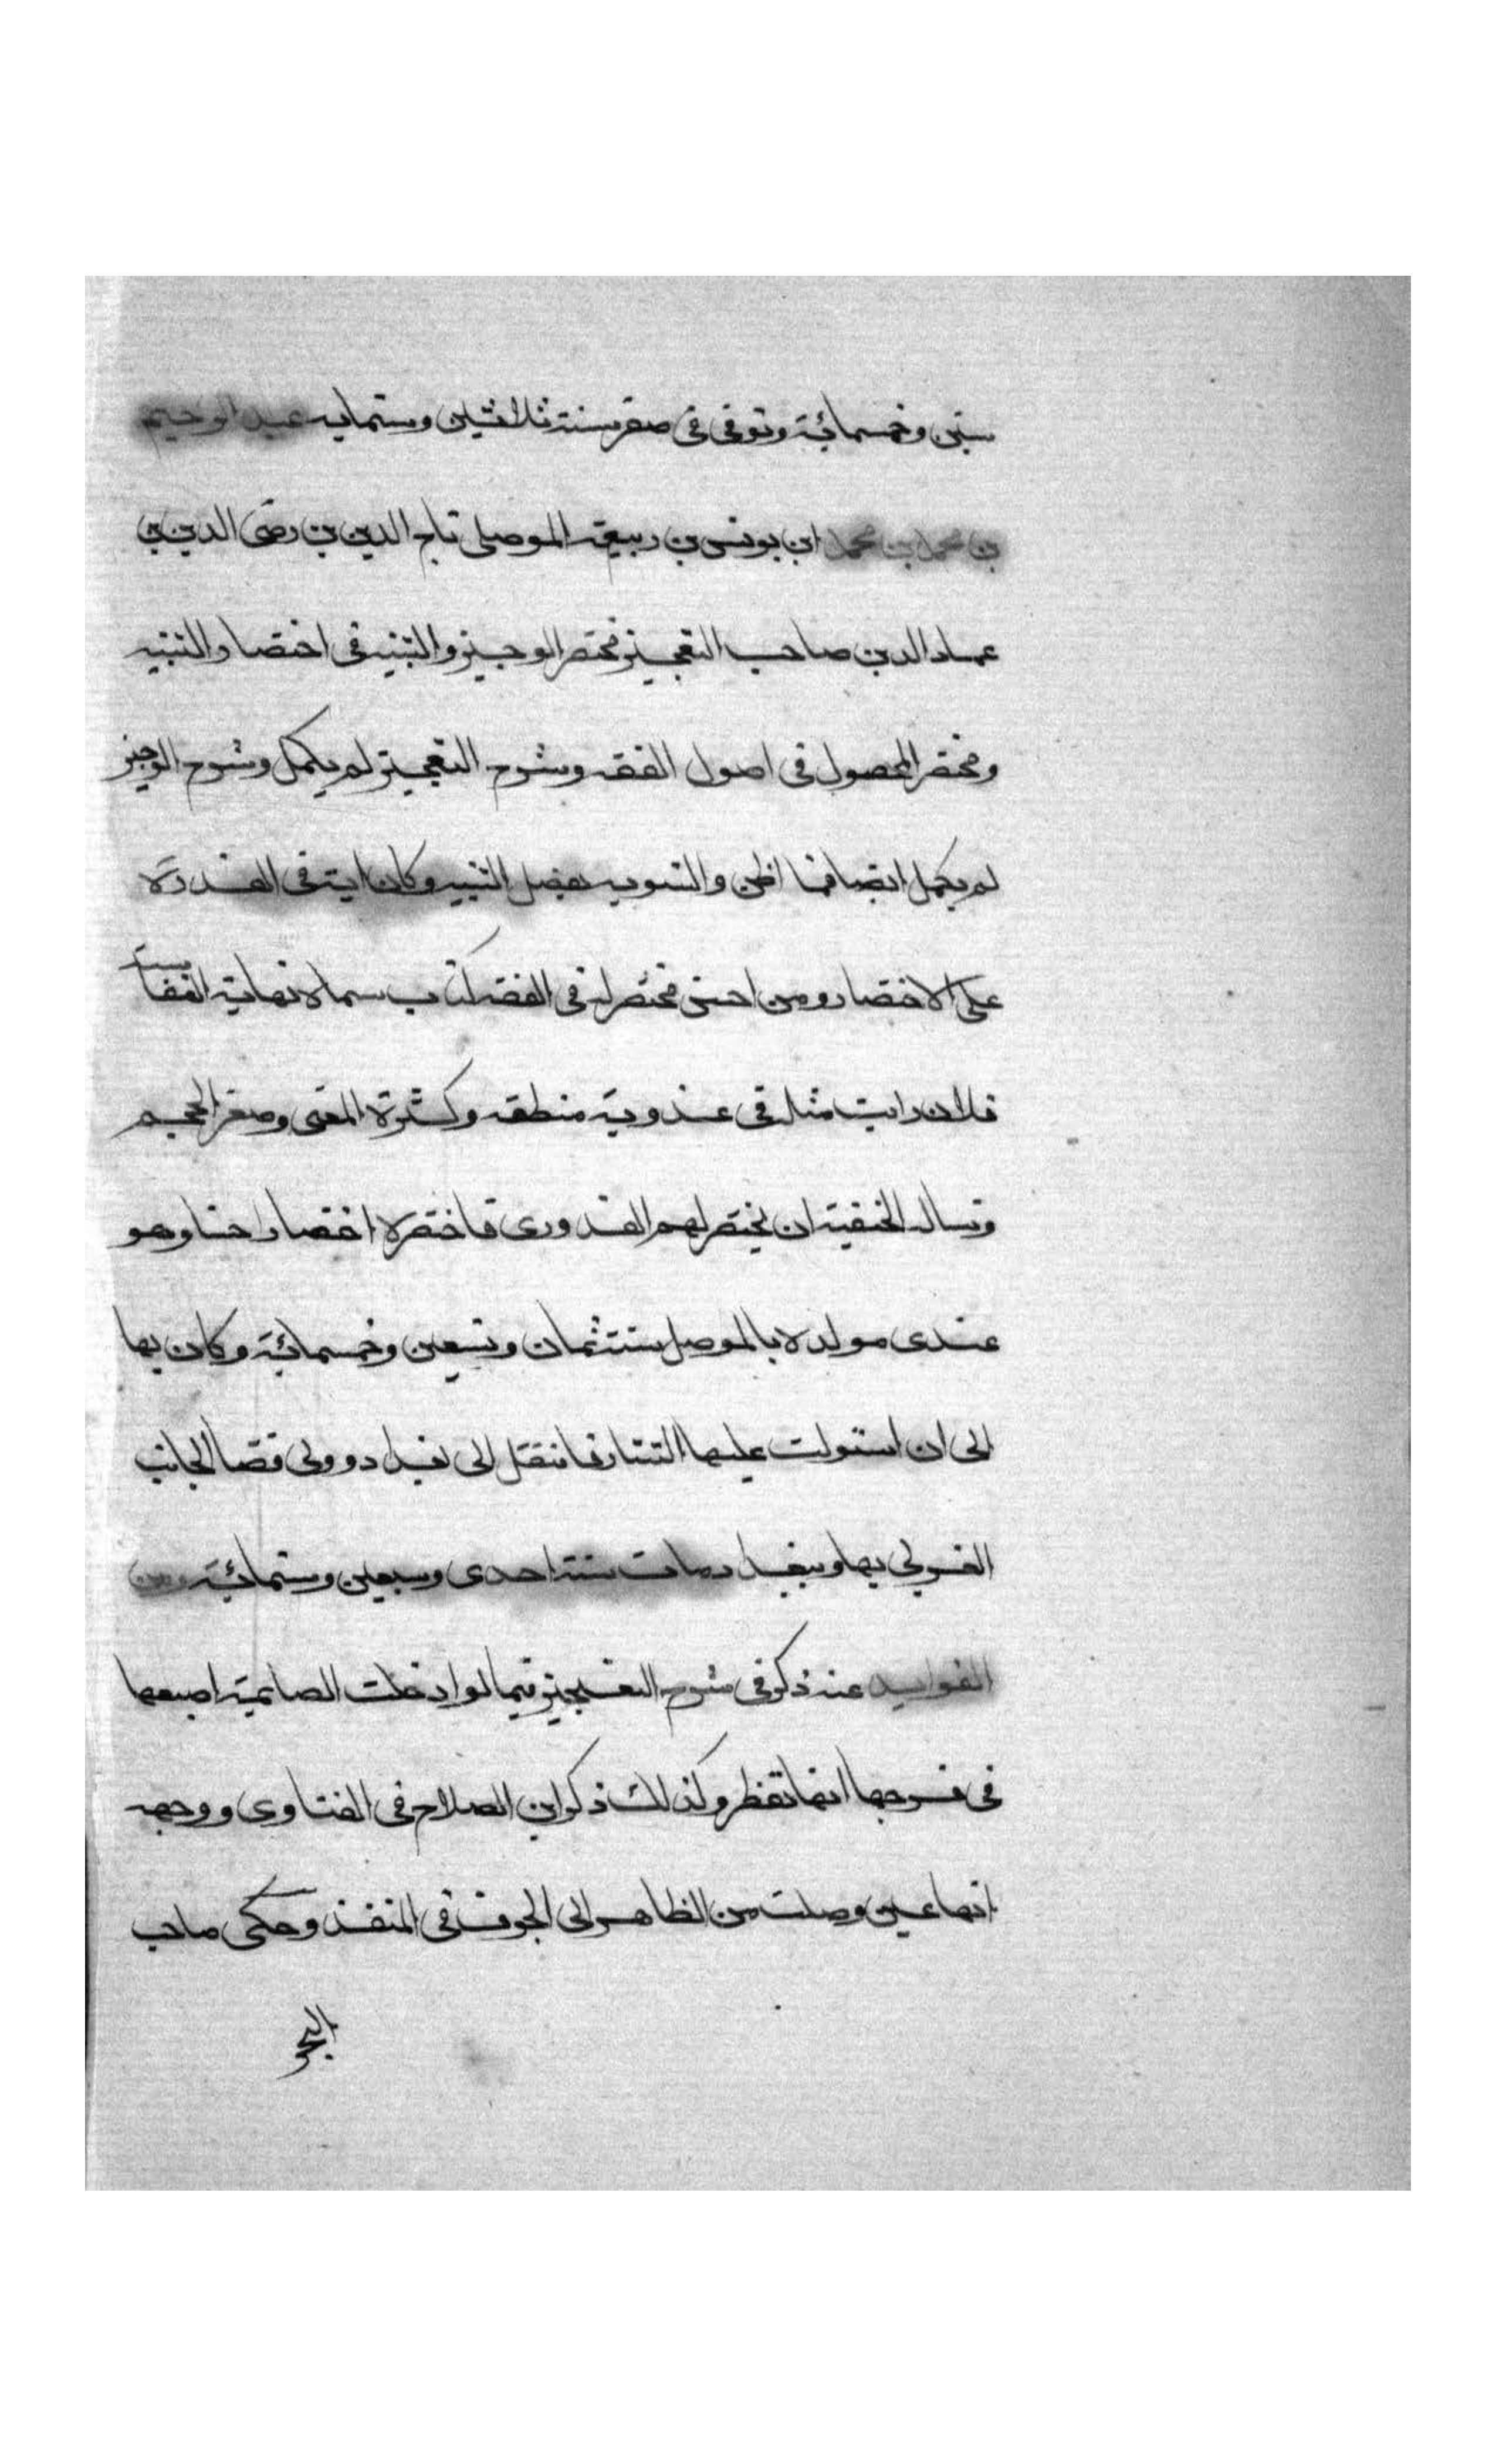 ستين وخمسمائة وتوفى فى صفر سنة ثلاثين وستمايه عبد الرحيم
بن محمد بن محمد ابن يونس بن ربيعة الموصلى تاج الدين بن رضى الدين بن
عماد الدين صاحب التعجيز مختصر الوجيز والتنبيه فى اختصار التنبيه
ومختصر المحصول فى اصول الفقه وشرح التعجيز لم يكمل وشرح الوجيز
لم يكمل ايضا فيما اظن والتنويه بفضل التنبيه وكان اية فى القدرة
على الاختصار ومن احسن مختصر له فى الفقه كتاب سماه نهاية النفاسة
فلان رايت مثله فى عذوبة منطقه وكثرة المعنى وصغر الحجم
وتساله الحنفية ان يختصر لهم القدورى فاختصره اختصارا حسنا وهو
عندى مولده بالموصل سنة ثمان وتسعين وخمسمائة وكان بها
الى ان استولت عليها التتار فانتقل الى بغداد وولى قضا الجانب
الغربى بها وببغداد مات سنة احدى وسبعين وستمائة ومن
الفوايد عنه ذكر فى شرح التعجيز فيما لو ادخلت الصايمة اصبعها
فى فرجها انها تفطر وكذلك ذكر ابن الصلاح فى الفتاوى ووجهه
انها عين وصلت من الظاهر الى الجوف فى المنفذ وحكى صاحب
البحر